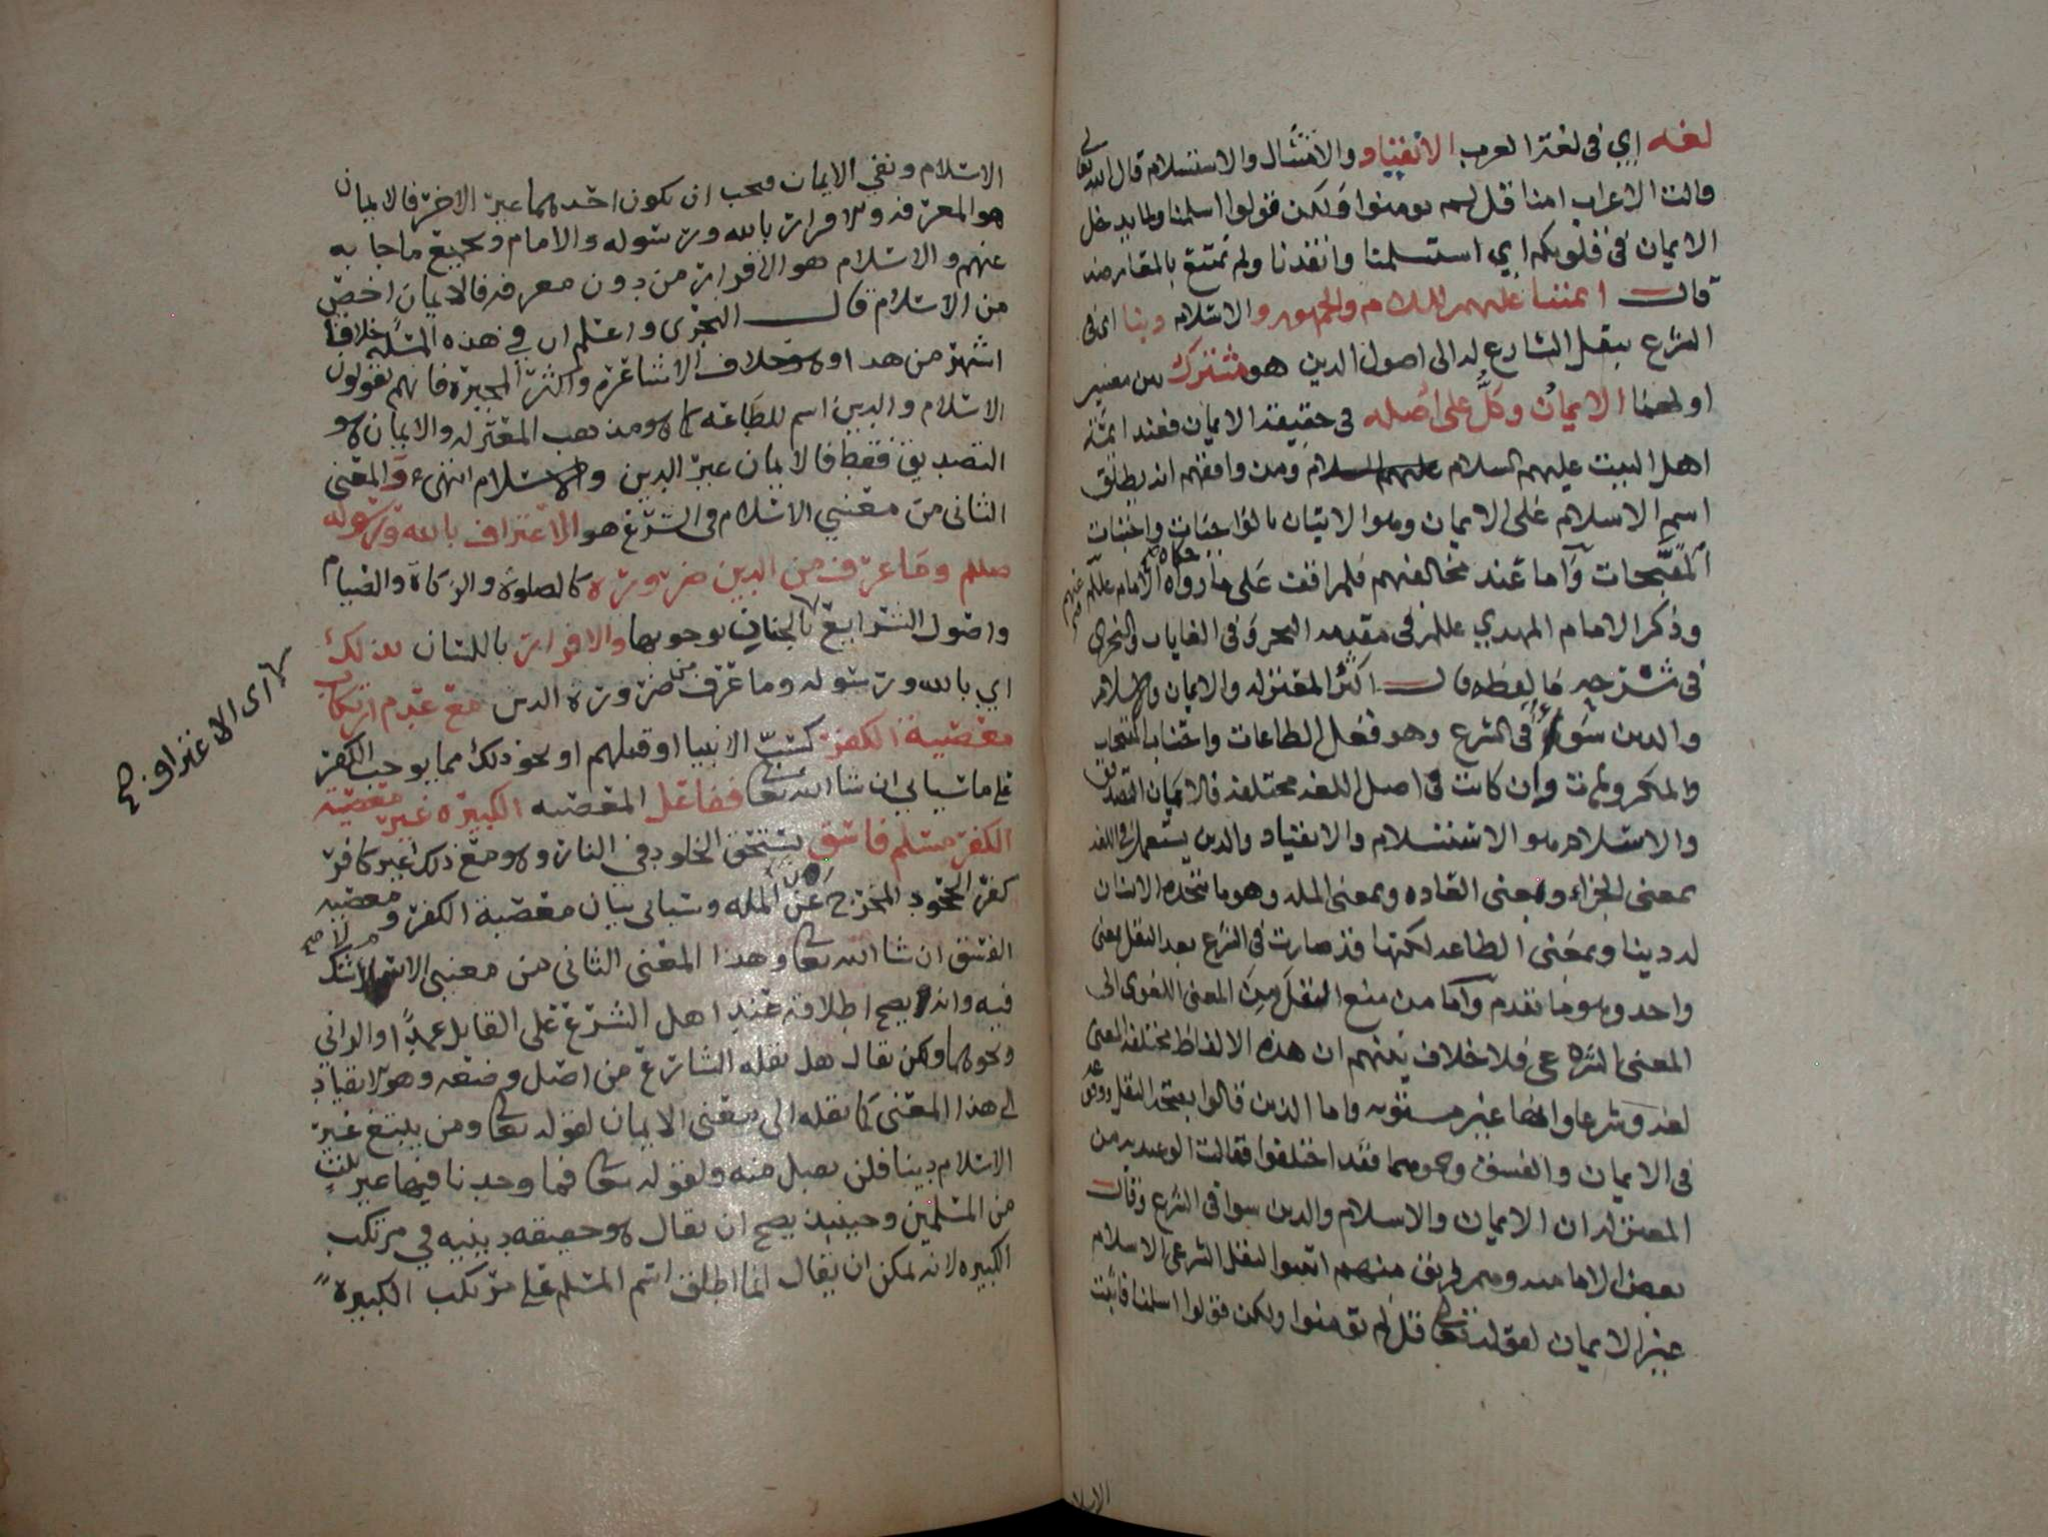 لغه اي في لغة العرب الانقياد والامتثال والاستسلام قال الله تعالى
قالت الاعراب امنا قل لم تومنوا ولكن قولوا اسلمنا ولما يدخل
الايمان في قلوبكم اي استسلمنا وانقدنا ولم نمتنع بالمقارضه
قال ائمتنا عليهم السلام والجمهور والاسلام دينا اي في
الشرع بنقل الشارع له الى اصول الدين هو مشترك بين معنيين
اولهما الايمان وكل على اصله في حقيقة الايمان فعند ائمة
اهل البيت عليهم السلام ومن وافقهم انه يطلق
اسم الاسلام على الايمان وهو الاتيان بالواجبات واجتناب
المقبحات واما عند مخالفيهم فلم اقف على ما رواه الامام عليلم عنهم صح
حكاه صح
وذكر الامام المهدي عليلم في مقدمة البحر وفي الغايات والنجري
في شرحه ما لفظه قال اكثر المعتزله والايمان والاسلام
والدين سواء في الشرع وهو فعل الطاعات واجتناب المقبحات
والمكروهات وان كانت في اصل اللغه مختلفه فالايمان التصديق
والاسلام هو الاستسلام والانقياد والدين يستعمل في اللغه
بمعنى الجزاء وبمعنى العاده وبمعنى المله وهو ما يتخذه الانسان
له دينا وبمعنى الطاعه لكنها قد صارت في الشرع بعد النقل بمعنى
واحد وهو ما تقدم واما من منع النقل من المعنى اللغوي الى
المعنى الشرعي فلا خلاف بينهم ان هذه الالفاظ مختلفة المعنى
لغة وشرعا وانها غير مستويه واما الذين قالوا بصحة النقل ووقوعه
في الايمان والفسق ونحوهما فقد اختلفوا فقالت الوعيديه من
المعتزله ان الايمان والاسلام والدين سوا في الشرع وقال
بعض الاماميه وهم فريق منهم اثبتوا النقل الشرعي الاسلام
غير الايمان لقوله تعالى قل لم تومنوا ولكن قولوا اسلمنا فاثبت
الاسلا
الاسلام ونفى الايمان فيجب ان يكون احدهما غير الاخر فالايمان
هو المعرفه والاقرار بالله ورسوله والامام وبجميع ما جا به
عنهم والاسلام هو الاقرار من دون معرفه فالايمان اخص
من الاسلام قال النجري واعلم ان في هذه المسئله خلافا
اشهر من هذا وهو خلاف الاشاعره واكثر المجبره فانهم يقولون
الاسلام والدين اسم للطاعه كما هو مذهب المعتزله والايمان هو
التصديق فقط فالايمان غير الدين والاسلام انتهى والمعنى
الثاني من معنيي الاسلام في الشرع هو الاعتراف بالله ورسوله
صللم وما عرف من الدين ضرورة كالصلوة والزكاة والصيام
واصول الشرايع بالجنان بوجوبها والاقرار باللسان بذلك
اي بالله ورسوله وما عرف من ضرورة الدين مع عدم ارتكاب
معصية الكفر كسب الانبيا او قتلهم او نحو ذلك مما يوجب الكفر
على ما سياتي ان شا الله تعالى ففاعل المعصيه الكبيرة غير معصية
الكفر مسلم فاسق يستحق الخلود في النار وهو مع ذلك غير كافر
كفر الجحود المخرج عن المله وسياتي بيان معصية الكفر ومعصية
الفسق ان شا الله تعالى وهذا المعنى الثاني من معنيي الاسلام لا شك
فيه وانه يصح اطلاقه عند اهل الشرع على القاتل عمدا والزاني
ونحوهما ولكن يقال هل نقله الشارع من اصل وضعه وهو الانقياد
الى هذا المعنى كما نقله الى معنى الايمان لقوله تعالى ومن يبتغ غير
الاسلام دينا فلن يقبل منه ولقوله تعالى فما وجدنا فيها غير بيت
من المسلمين وحينيذ يصح ان يقال هو حقيقه دينيه في مرتكب
الكبيره لانه يمكن ان يقال انما اطلق اسم المسلم على مرتكب الكبيرة
اي الاعتراف صح